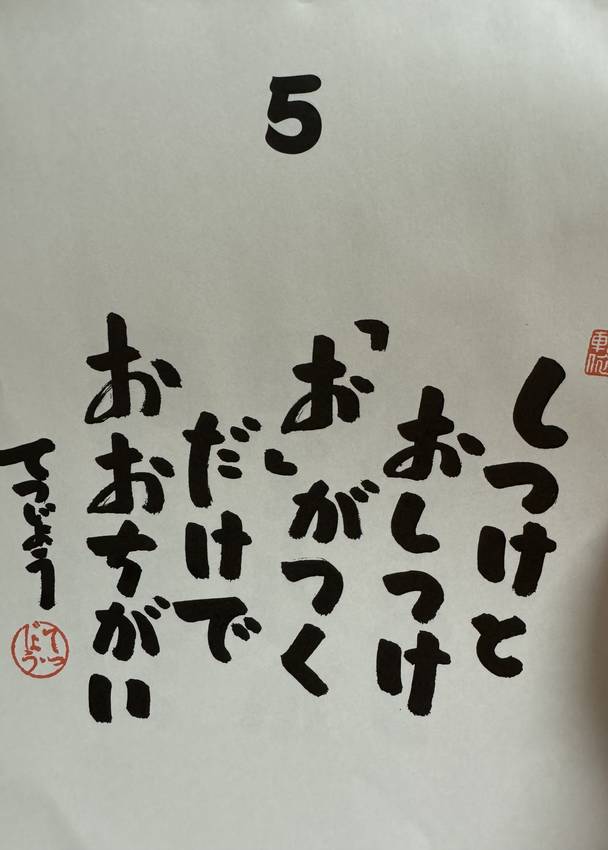 5
しつけと
おしつけ
「お」がつく
だけで
おおちがい
てつじょう
てつじょう